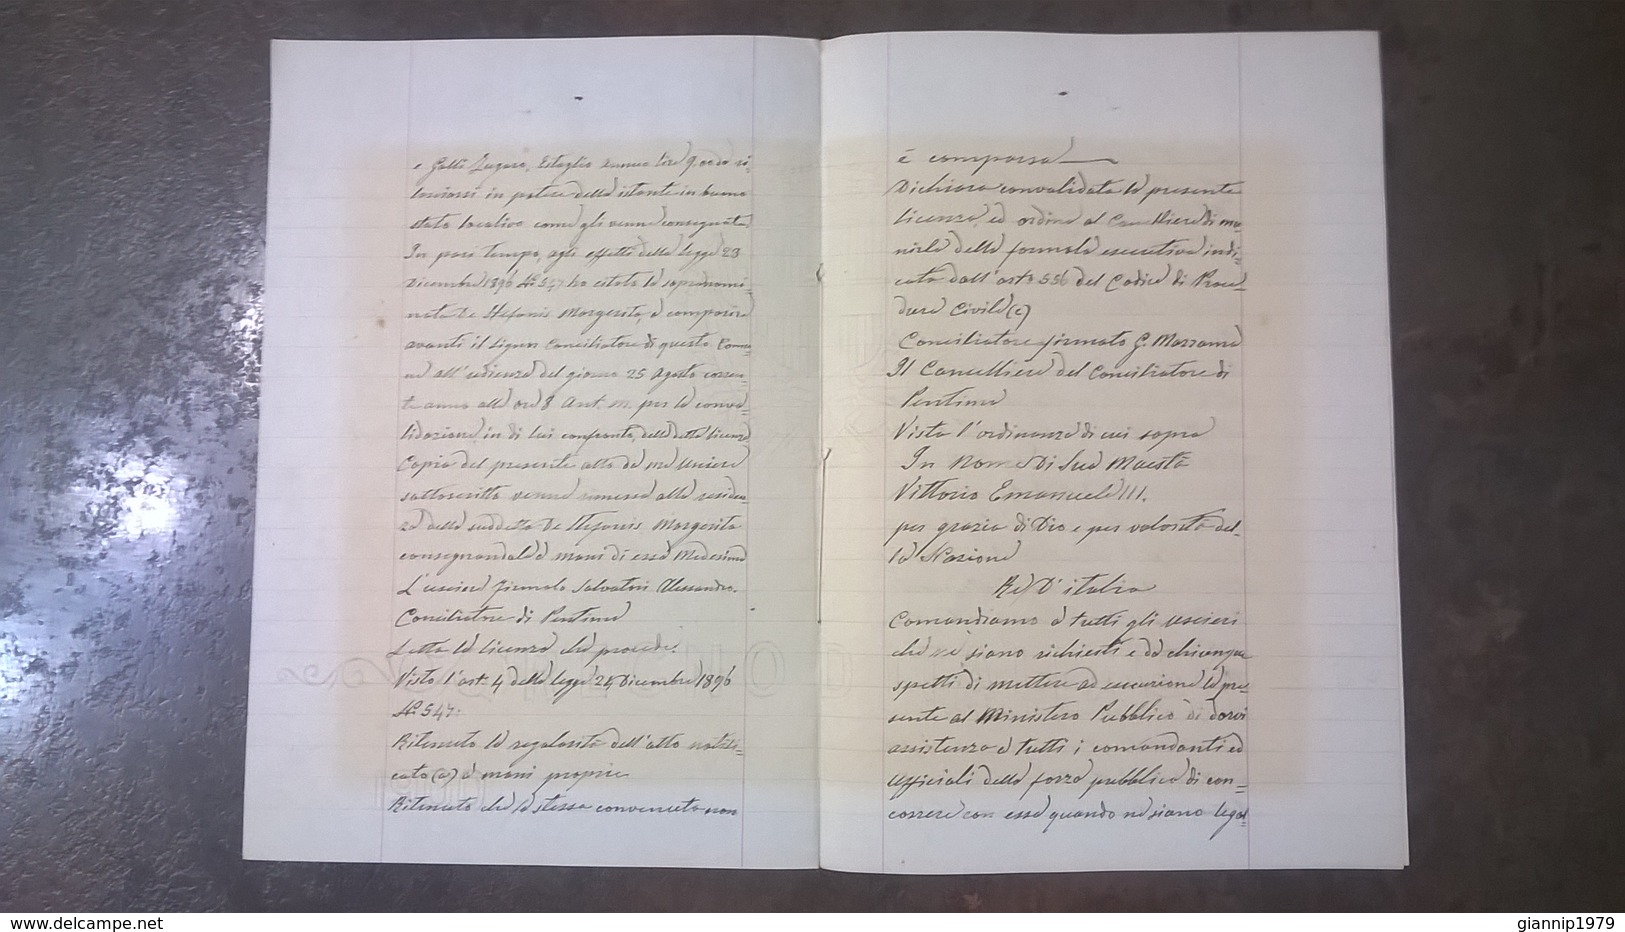 e Gatti Lazzaro, Estaglio annuo lire 9.00 da ri-
lasciarsi in potere della istante in buono
stato locativo come gli venne consegnato.
In pari tempo, agli effetti della legge 23
Dicembre 1896 N° 547 ho citato la sopranomi-
nata De Stefanis Margerita, a comparire
avanti il Signor Conciliatore di questo Comu-
ne all'udienza del giorno 25 Agosto corren-
te anno alle ore 8 Ant. m. per la conva-
lidazione in di lui confronto, della detta licenza
Copia del presente atto da me Usciere
sottoscritto venne rimessa alla residen-
za della suddetta De Stefanis Margerita
consegnandola a mani di essa Medesima
L'usciere Firmato Salvatori Alessandro.
Conciliatore di Pentima
Letta la licenza che precede.
Visto l'art. 4 della legge 24 Dicembre 1896
N° 547:
Ritenuto la regolarità dell'atto notifi-
cato (a) a mani proprie
Ritenuto che la stessa convenuta non
è comparsa
Dichiara convalidata la presente
licenza ed ordina al Cancelliere di mu-
nirla della formola esecutiva indi-
cata dall'art° 556 del Codice di Proce-
dura Civile (c)
Conciliatore firmato G. Marrama
Il Cancelliere del Conciliatore di
Pentima
Vista l'ordinanza di cui sopra
In Nome Di Sua Maestà
Vittorio Emanuele III.
per grazia di Dio e per volontà del-
la Nazione
Re D'italia
Comandiamo a tutti gli uscieri
che ne siano richiesti e da chiunque
spetti di mettere ad esecuzione la pre-
sente al Ministero Pubblico di darvi
assistenza a tutti i comandanti ed
Ufficiali della forza pubblica di con-
correre con essa quando ne siano legal-
www.delcampe.net
giannip1979